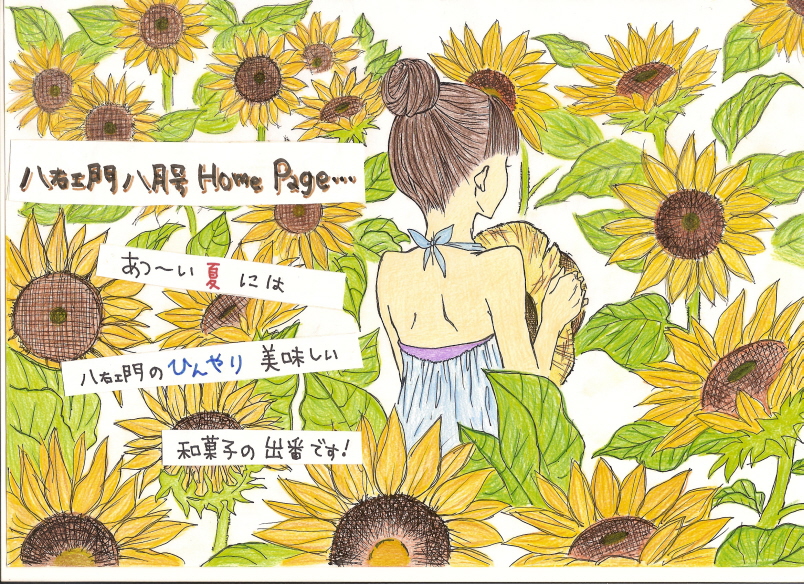 八右ヱ門八月号 Home Page....
あつ〜い 夏 には
八右ヱ門の ひんやり 美味しい
和菓子の 出番です!